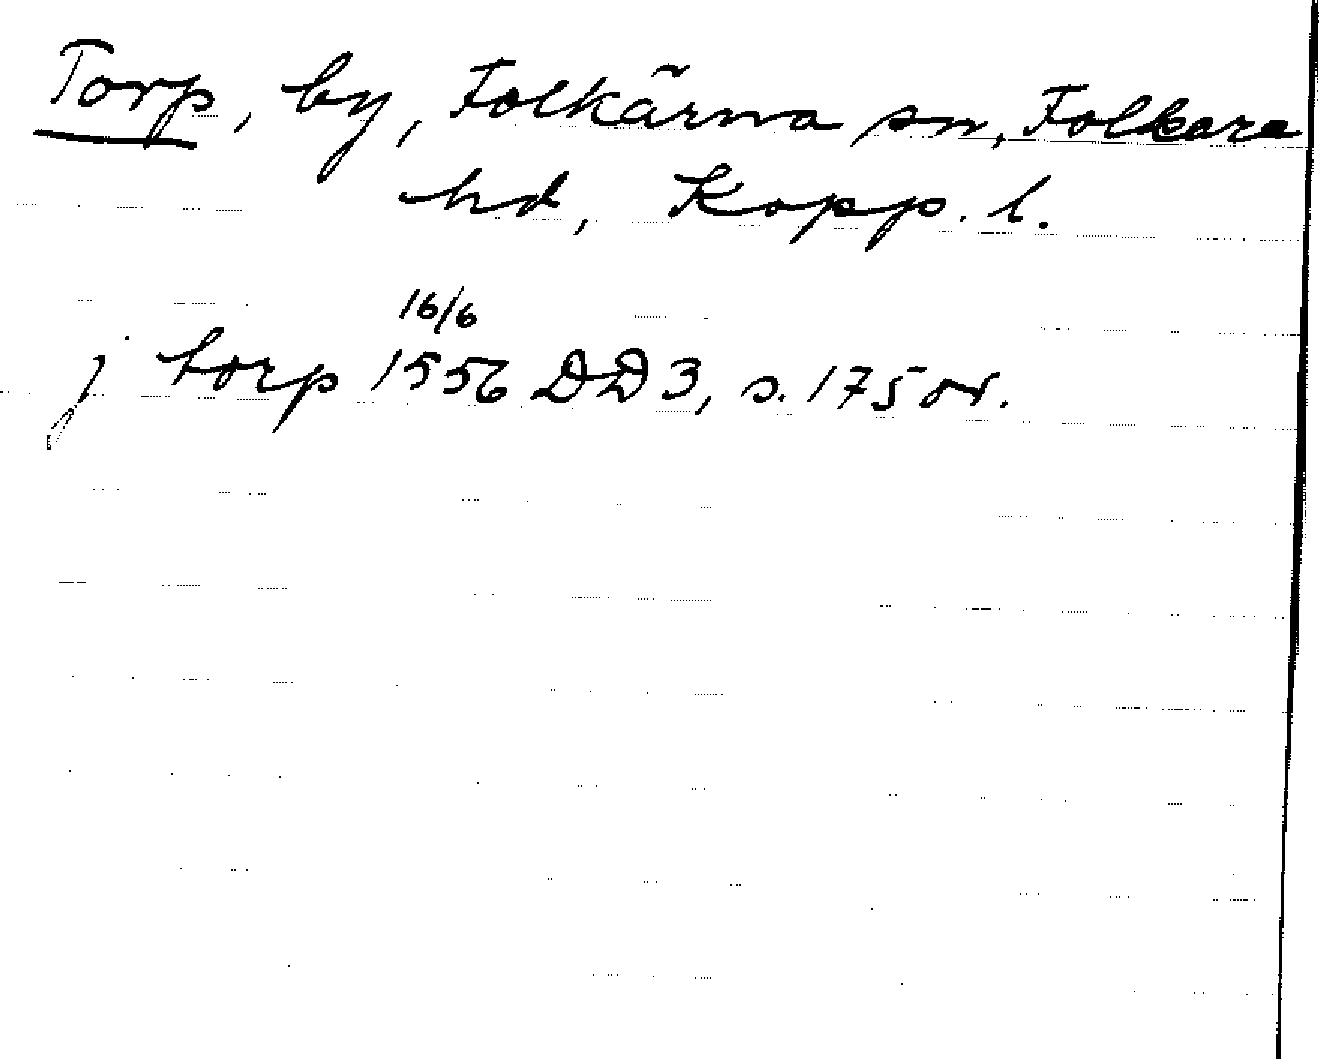 Torp, by, Folkärna sn, Folkare
hd, Kopp. l.
16/6
j torp 1556 DD3, s. 175 or.